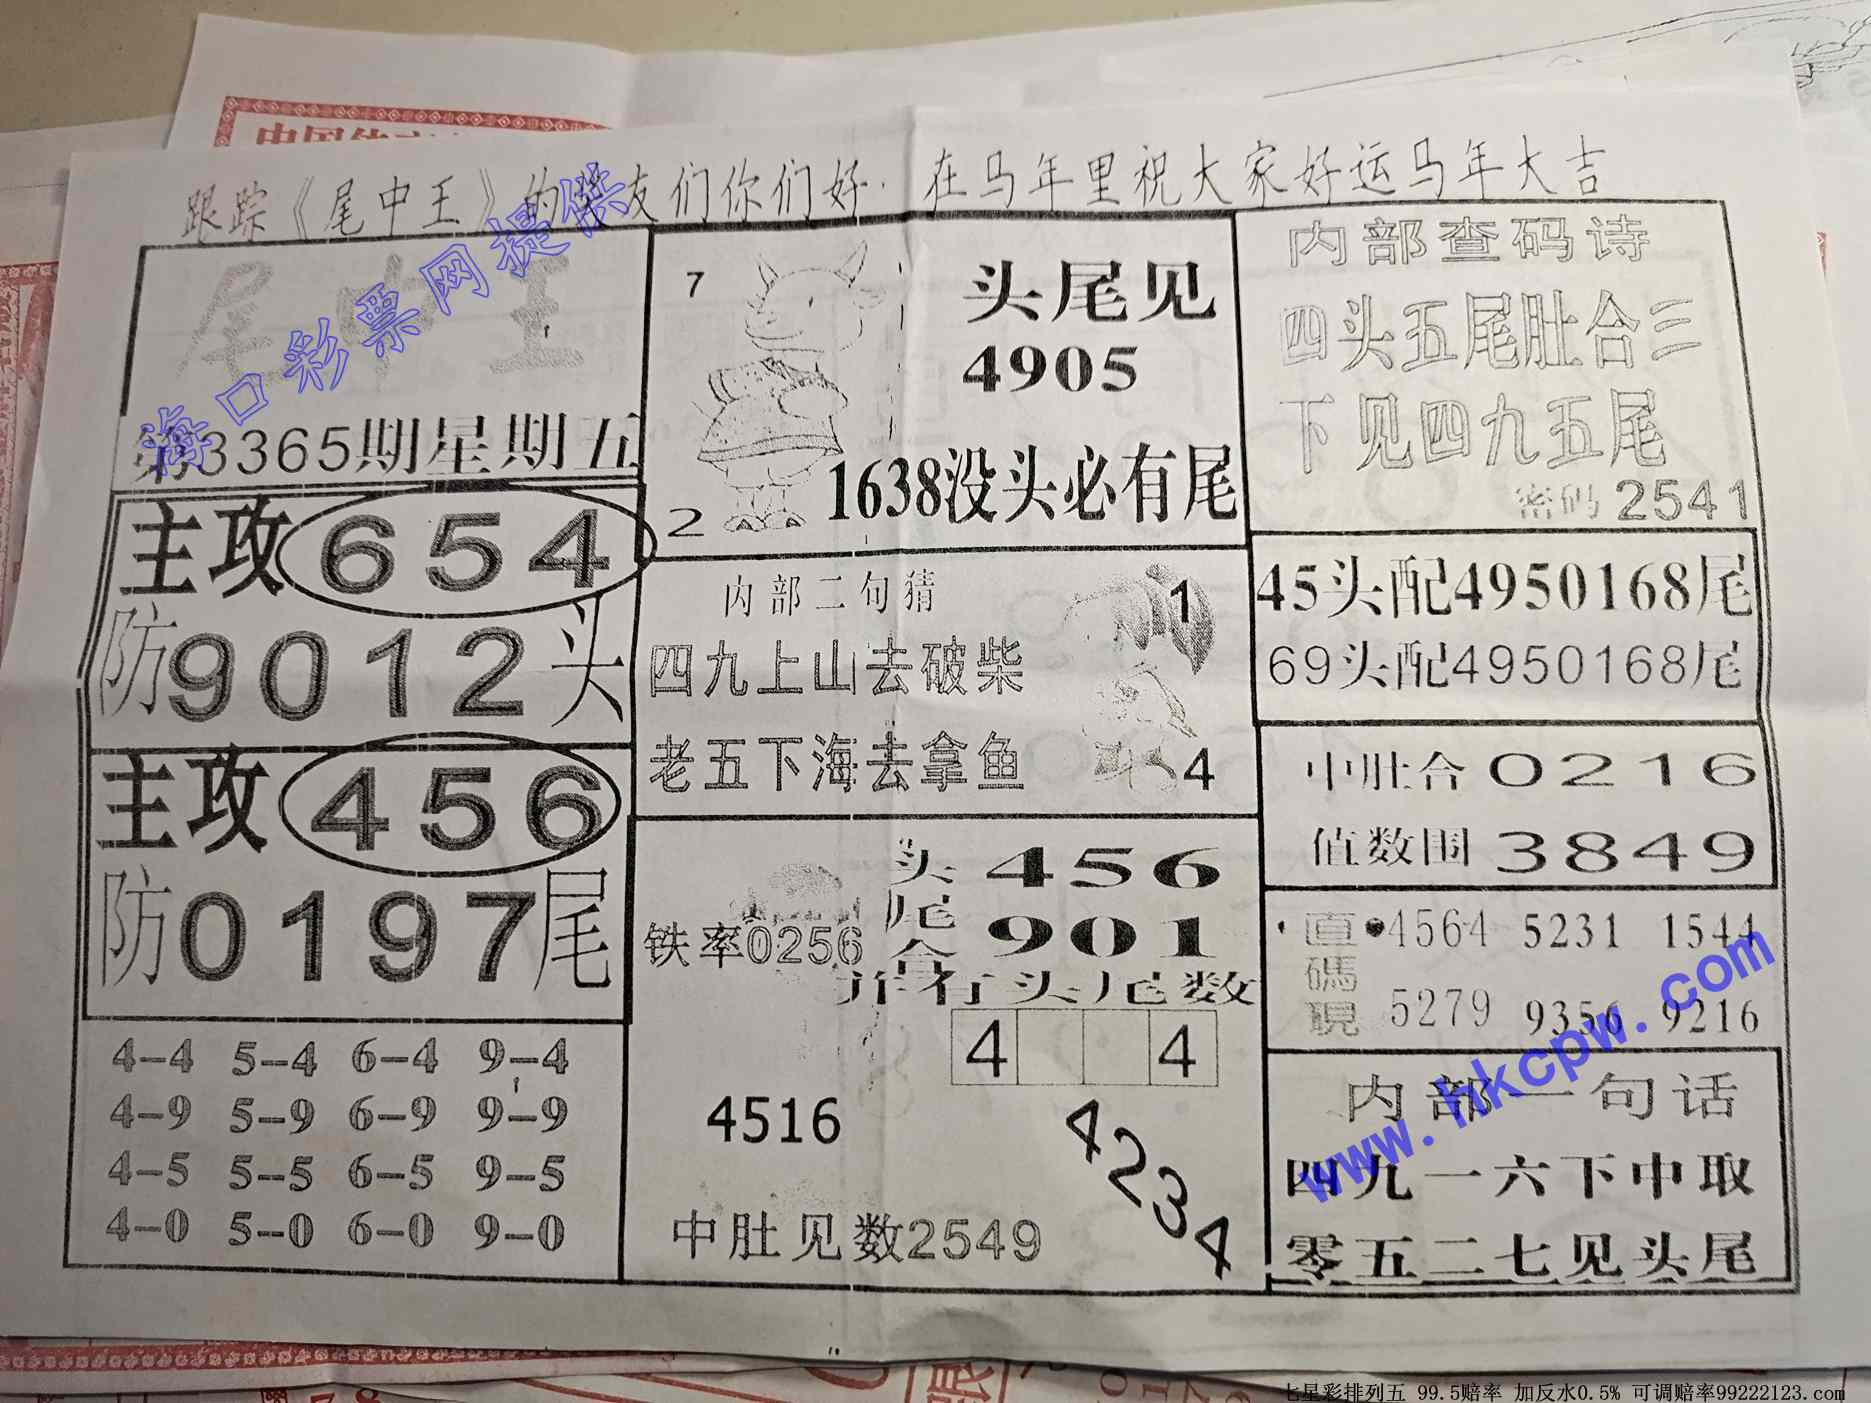 跟踪《尾中王》的彩友们你们好. 在马年里祝大家好运马年大吉
尾中王
第3365期星期五
主攻 654
防9012头
主攻 456
防0197尾
4--4 5--4 6--4 9--4
4--9 5--9 6--9 9--9
4--5 5--5 6--5 9--5
4--0 5--0 6--0 9--0
7
头尾见
4905
1638没头必有尾
2
内部二句猜
四九上山去破柴
老五下海去拿鱼
1
4
头 456
尾 901
合
铁率0256
并有头尾数
4 4
4516
4234
中肚见数2549
内部查码诗
四头五尾肚合三
下见四九五尾
密码 2541
45头配4950168尾
69头配4950168尾
中肚合 0216
值数围 3849
直碼現
4564 5231 1544
5279 9356 9216
内部一句话
四九一六下中取
零五二七见头尾
海口彩票网提供
www.hkcpw.com
七星彩排列五 99.5赔率 加反水0.5% 可调赔率99222123.com